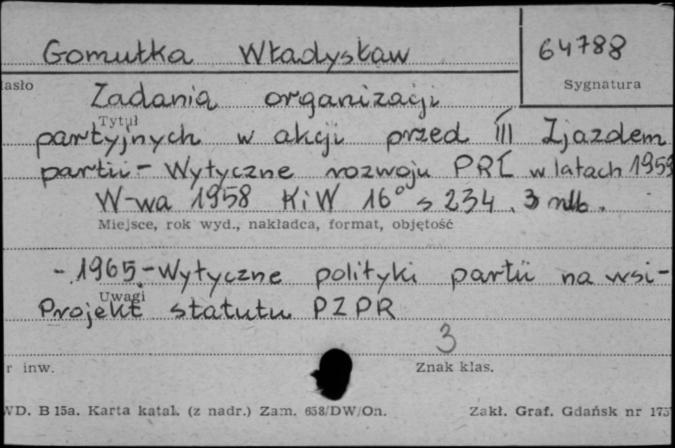 Gomułka Władysław
64788
asło
Sygnatura
Zadania organizacji
Tytuł
partyjnych w akcji przed III Zjazdem
partii - Wytyczne rozwoju PRL w latach 1959
W-wa 1958 KiW 16° s 234. 3 nlb.
Miejsce, rok wyd., nakładca, format, objętość
- 1965. - Wytyczne polityki partii na wsi -
Uwagi
Projekt statutu PZPR
3
r inw.
Znak klas.
WD. B 15a. Karta katal. (z nadr.) Zam. 658/DW/On.
Zakł. Graf. Gdańsk nr 175